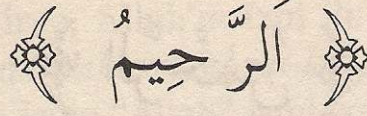 اَلرَّحِيمُ